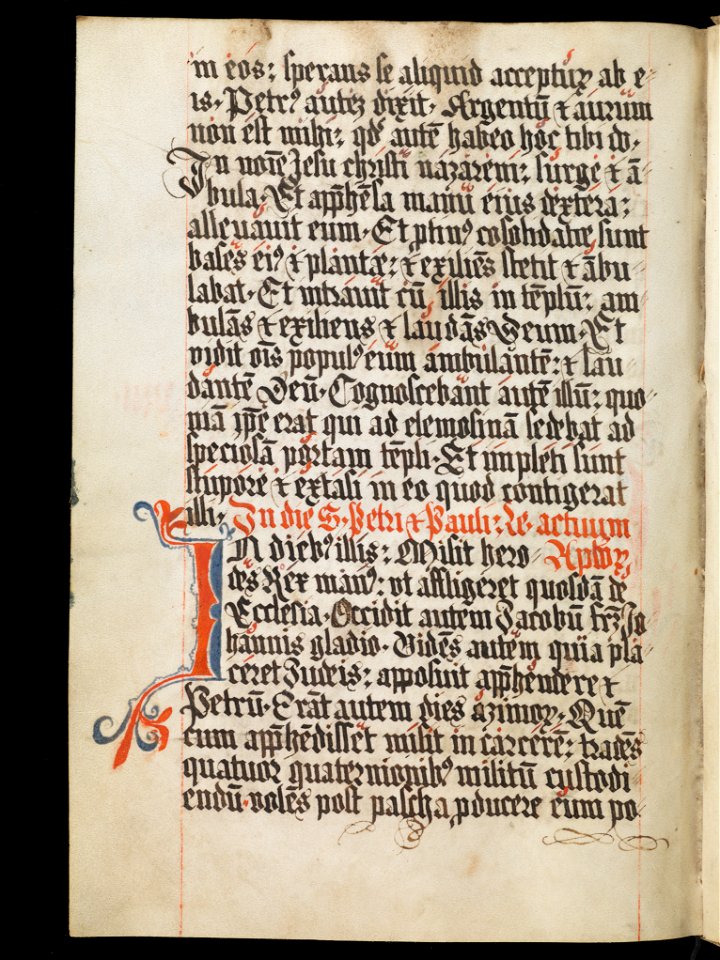 in eos: sperans se aliquid accepturꝝ ab e-
is. Petrꝰ autez dixit. Argentū ⁊ aurum
non est mihi: qd' autē habeo hoc tibi do.
In noīe Jesu christi nazareni: surge ⁊ ā-
bula. Et apphēsa manu eius dextera:
alleuauit eum. Et ꝓtinꝰ cōsolidatae sunt
bases eiꝰ ⁊ plantae: ⁊ exiliēs stetit ⁊ ābu-
labat. Et intrauit cū illis in tēplū: am-
bulās ⁊ exiliens ⁊ laudās Deum. Et
vidit oīs populꝰ eum ambulantē: ⁊ lau-
dantē Deū. Cognoscebant autē illū: quo-
niā ip̄e erat qui ad elemosinā sedebat ad
speciosā portam tēpli. Et impleti sunt
stupore ⁊ extasi in eo quod contigerat
illi. In die S. Petri ⁊ Pauli: Le. actuum
IN diebꝰ illis: Misit hero- Aplōꝝ
des Rex manꝰ: vt affligeret quosdā de
Ecclesia. Occidit autem Jacobū frēz Jo-
hannis gladio. Vidēs autem quia pla-
ceret Judeis: apposuit apphendere ⁊
Petrū. Erāt autem dies azimoꝝ. Quē
cum apphēdisset misit in carcerē: tradēs
quatuor quaternionibꝰ militū custodi-
endū volēs post pascha ꝓducere eum po-